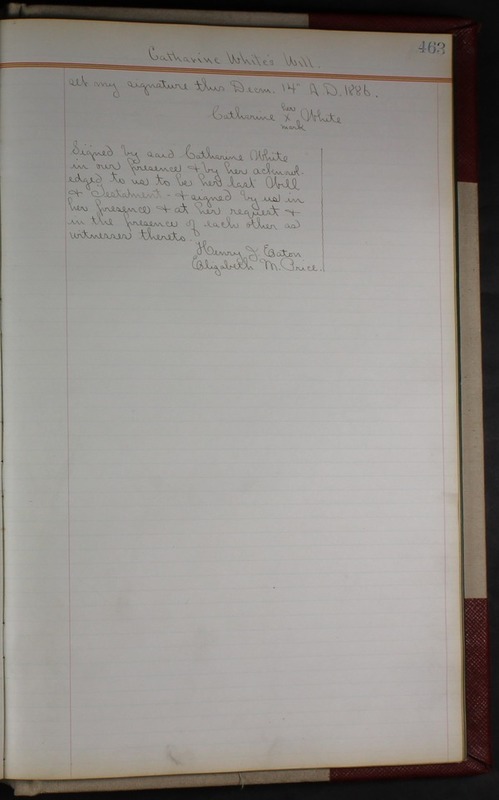 463
Catharine White's Will.
set my signature this Decm. 14" A.D. 1886.
her
Catharine x White
mark
Signed by said Catharine White
in our presence & by her acknowl-
edged to us to be her last Will
& Testament & signed by us in
her presence & at her request &
in the presence of each other as
witnesses thereto.
Henry F. Eaton
Elizabeth M. Price.